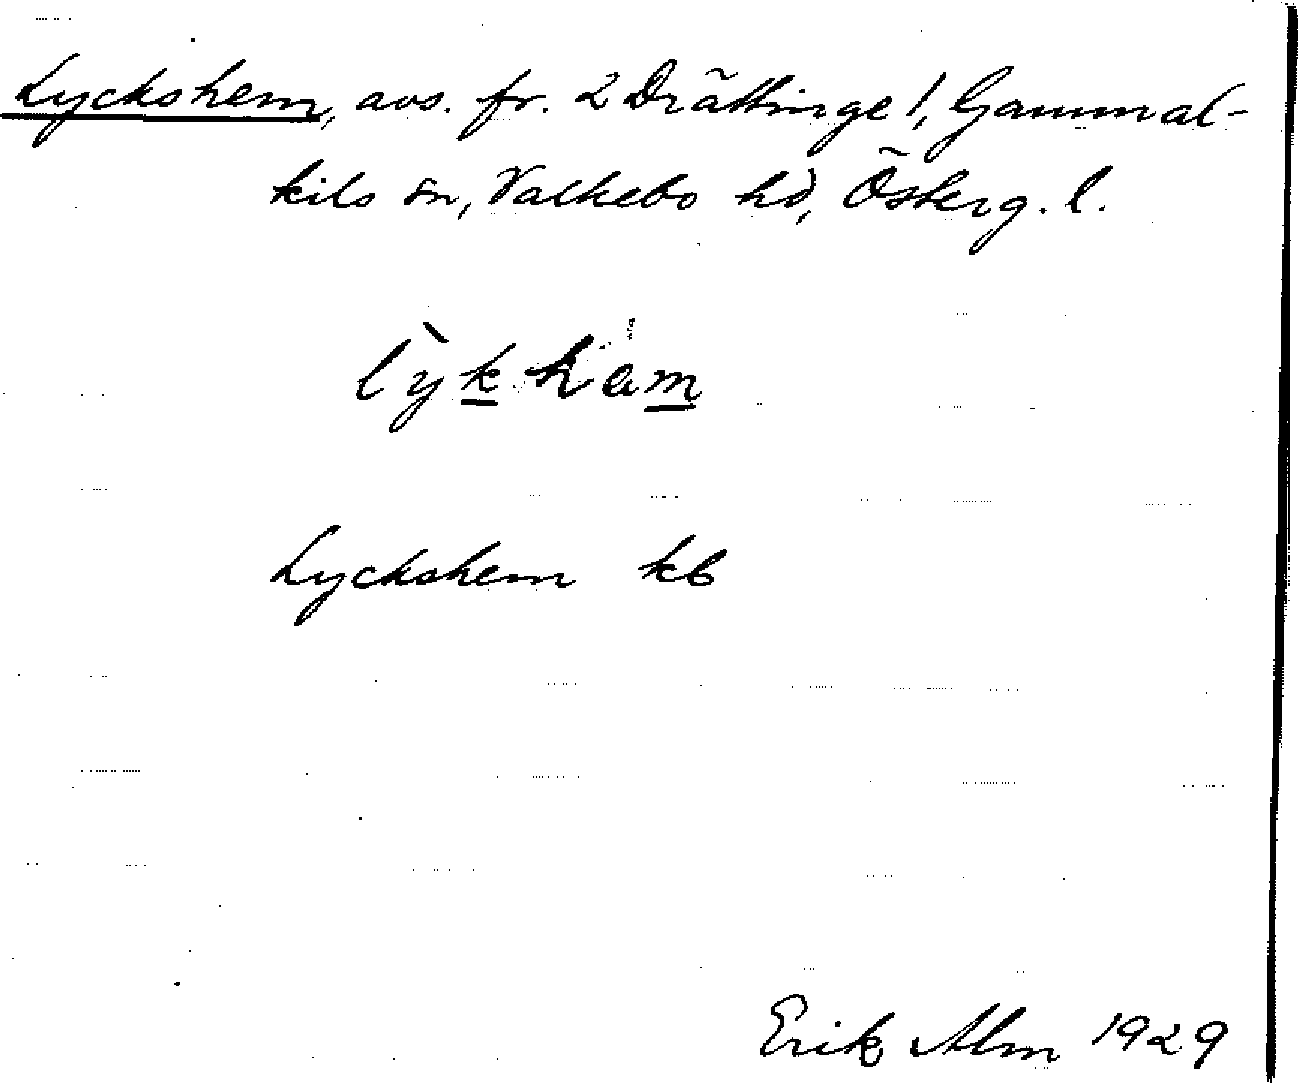 Lyckshem, avs. fr. 2 Drättinge !, Gammal-
kils sn, Valkebo hd, Österg. l.
lỳkham
Lyckshem kb
Erik Alm 1929